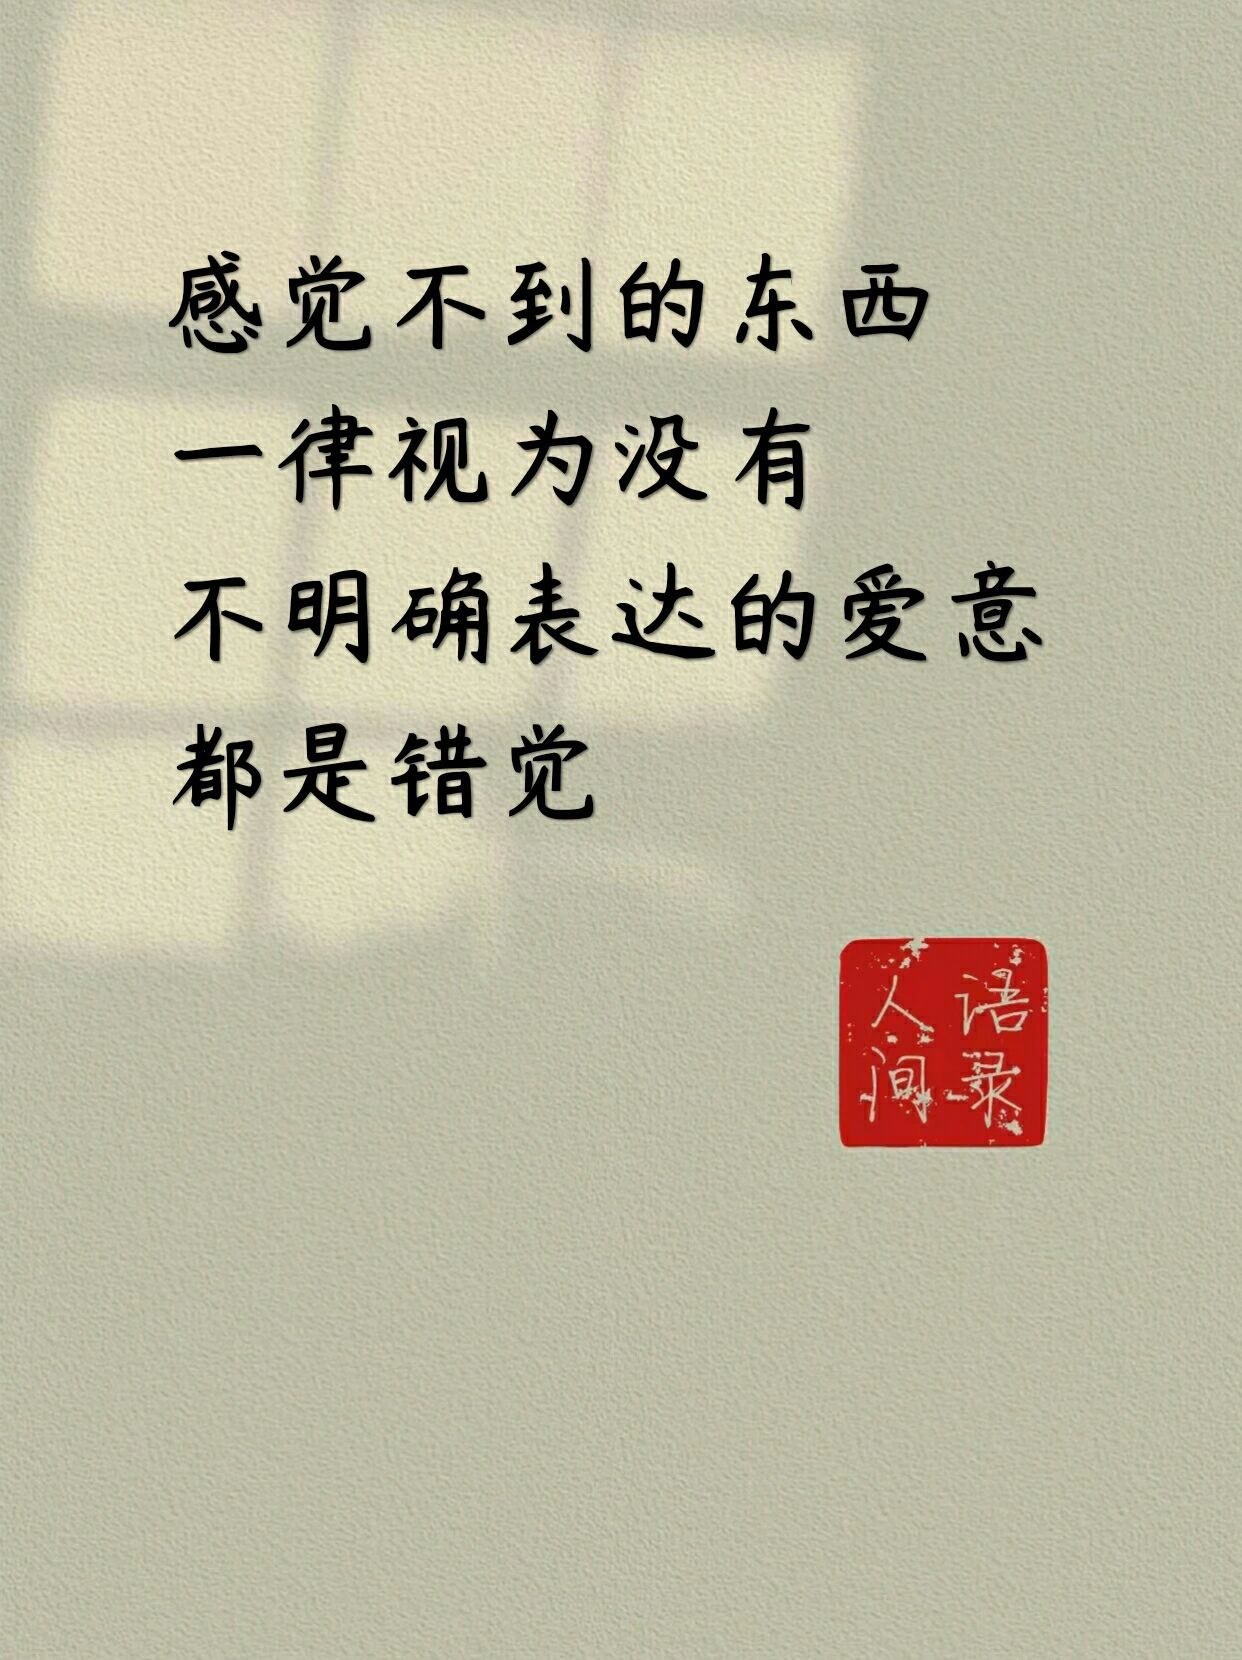 感觉不到的东西
一律视为没有
不明确表达的爱意
都是错觉
人间
语录